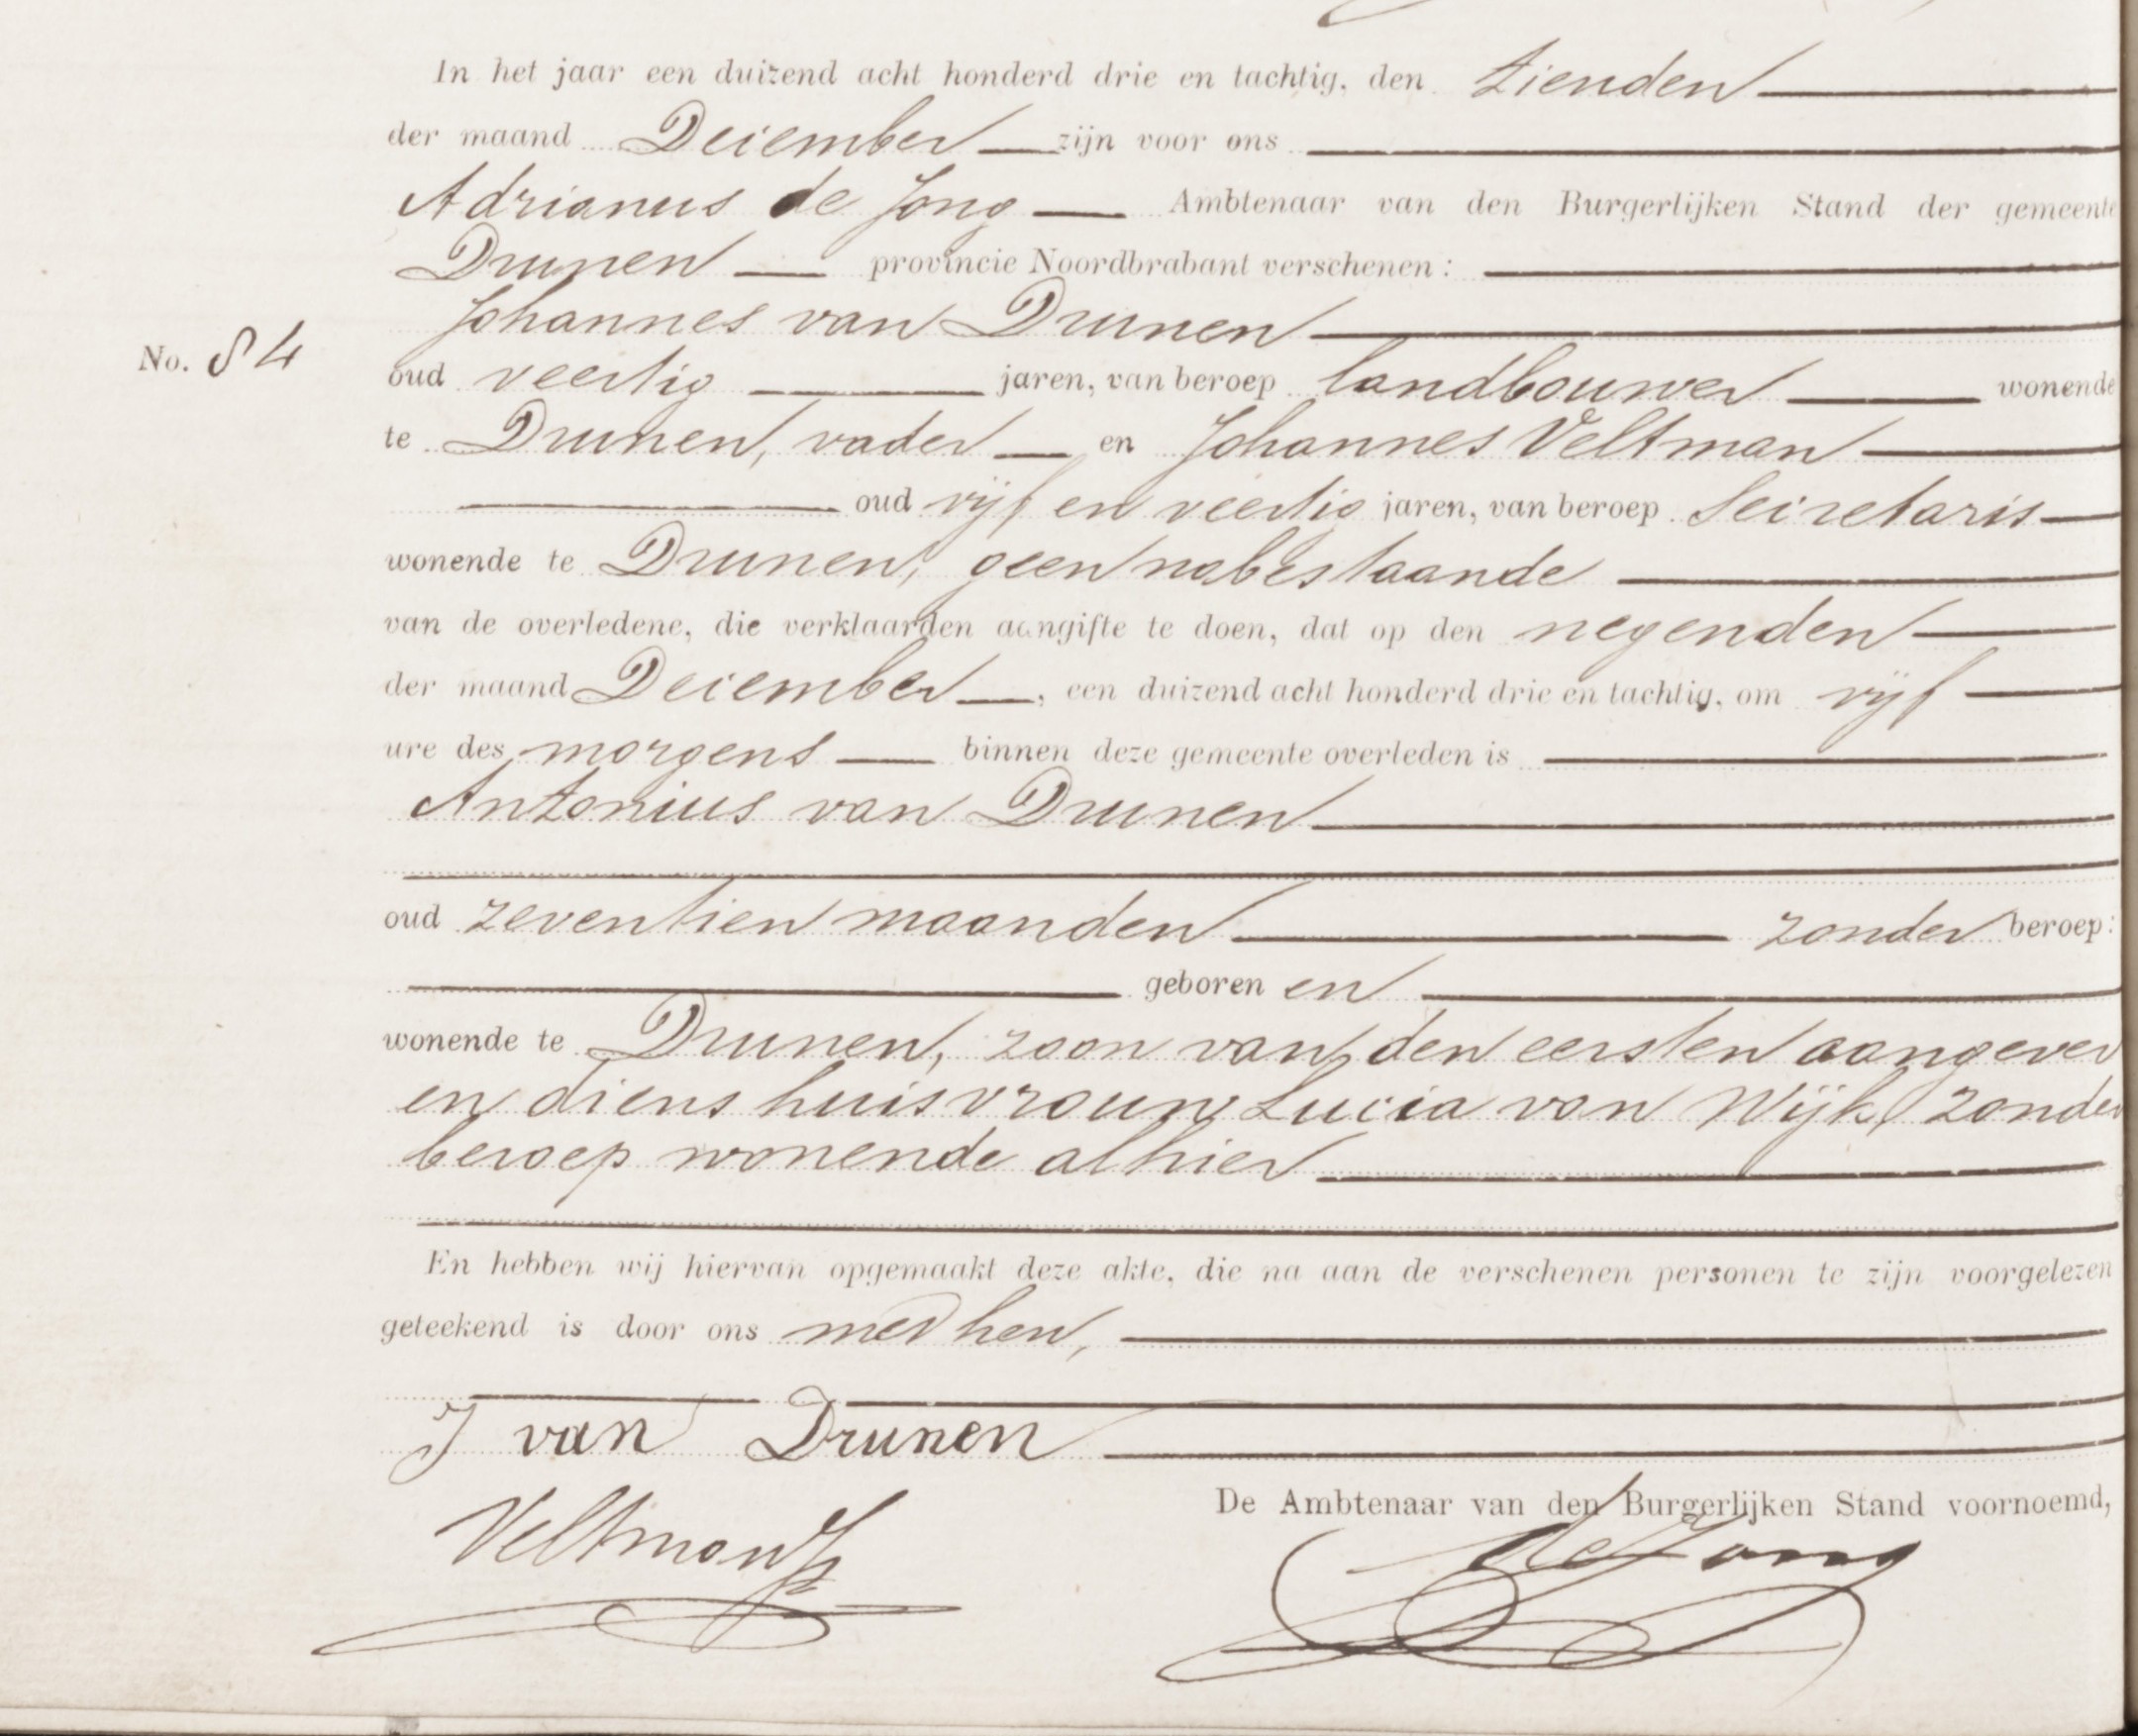 In het jaar een duizend acht honderd drie en tachtig, den tienden
der maand December zijn voor ons
Adrianus de Jong Ambtenaar van den Burgerlijken Stand der gemeente
Drunen provincie Noordbrabant verschenen:
Johannes van Drunen
No. 84
oud veertig jaren, van beroep landbouwer wonende
te Drunen, vader en Johannes Veltman
oud vijf en veertig jaren, van beroep Secretaris
wonende te Drunen, geen nabestaande
van de overledene, die verklaarden aangifte te doen, dat op den negenden
der maand December, een duizend acht honderd drie en tachtig, om vijf
ure des morgens binnen deze gemeente overleden is
Antonius van Drunen
oud zeventien maanden zonder beroep:
geboren en
wonende te Drunen, zoon van den eersten aangever
en diens huisvrouw Lucia van Wijk, zonder
beroep wonende alhier
En hebben wij hiervan opgemaakt deze akte, die na aan de verschenen personen te zijn voorgelezen
geteekend is door ons met hen,
J van Drunen
De Ambtenaar van den Burgerlijken Stand voornoemd,
Veltman
de Jong